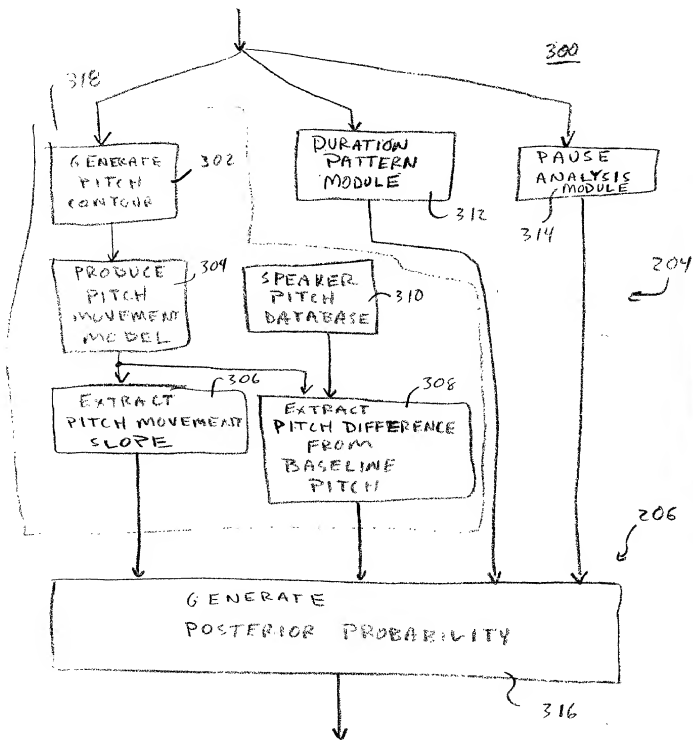 300
318
GENERATE
PITCH
CONTOUR
302
DURATION
PATTERN
MODULE
312
PAUSE
ANALYSIS
MODULE
314
PRODUCE
PITCH
MOVEMENT
MODEL
304
SPEAKER
PITCH
DATABASE
310
204
EXTRACT
PITCH MOVEMENT
SLOPE
306
EXTRACT
PITCH DIFFERENCE
FROM
BASELINE
PITCH
308
206
GENERATE
POSTERIOR PROBABILITY
316